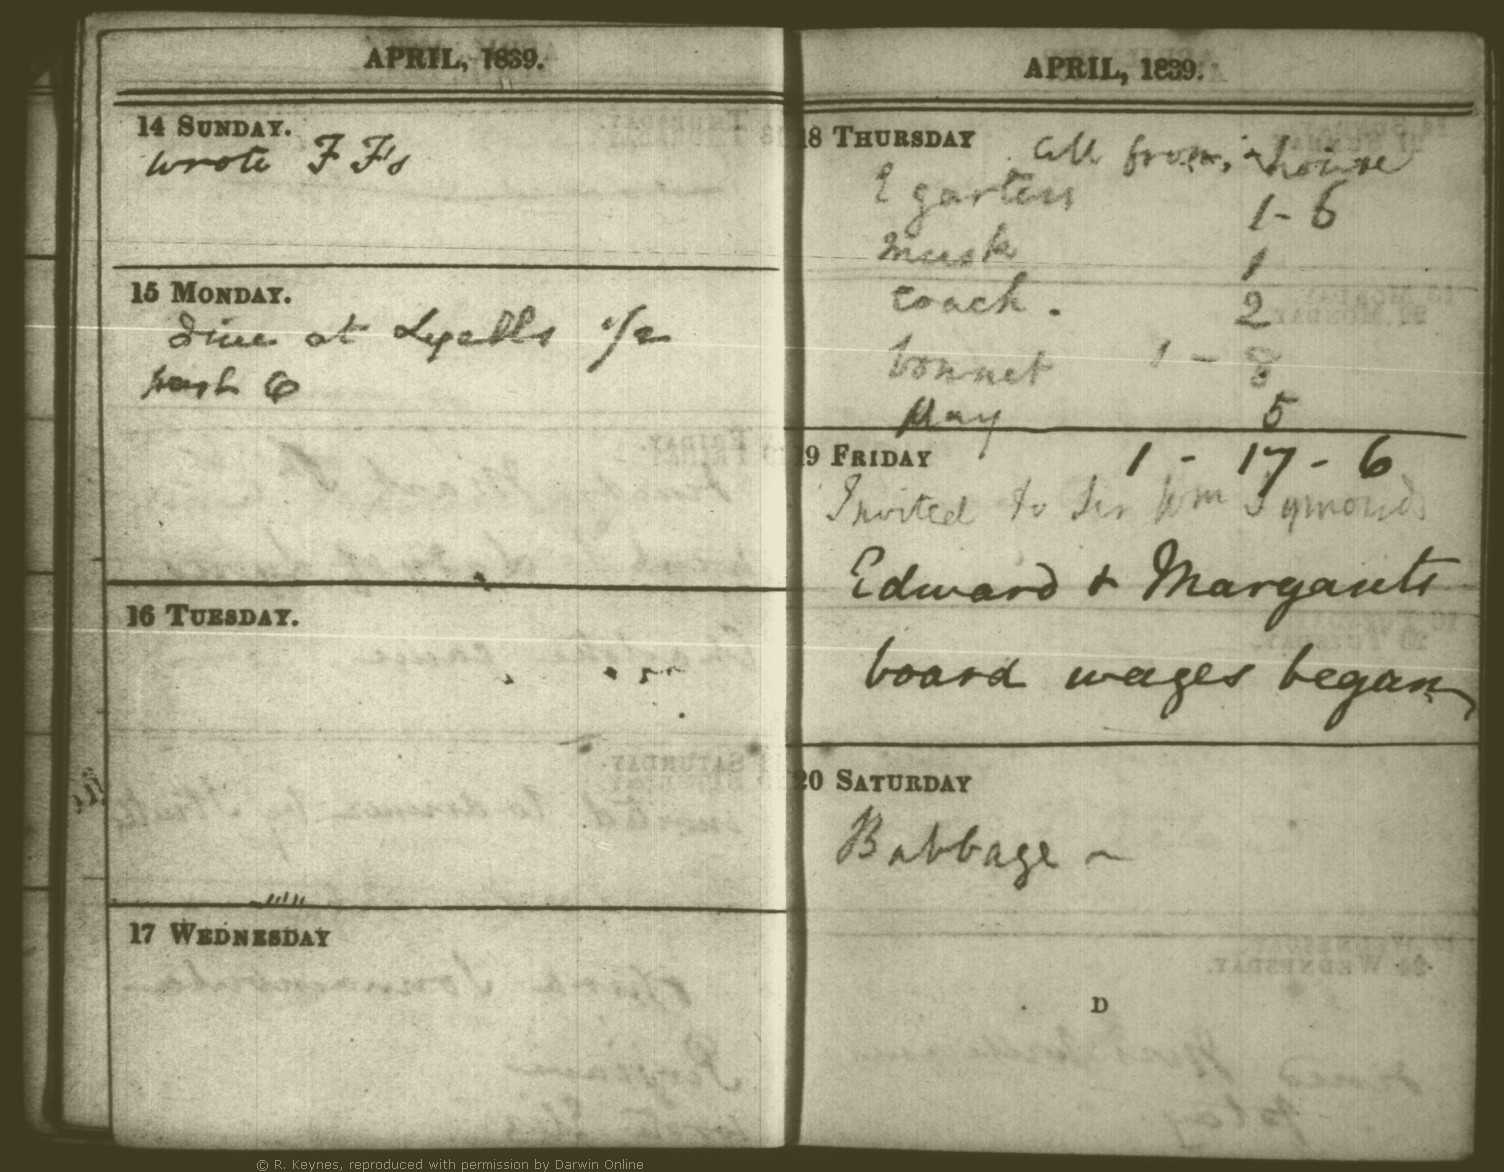 APRIL, 1839.
14 SUNDAY.
wrote F F's
15 MONDAY.
dine at Lyells 1/2
past 6
16 TUESDAY.
17 WEDNESDAY
APRIL, 1839.
18 THURSDAY
all from house
E garters 1 - 6
Musk 1
coach. 2
bonnet 1 - 8
May 5
19 FRIDAY 1 - 17 - 6
Invited to Sir Wm Symonds
Edward & Margarets
board wages began
20 SATURDAY
Babbage ~
D
© R. Keynes, reproduced with permission by Darwin Online